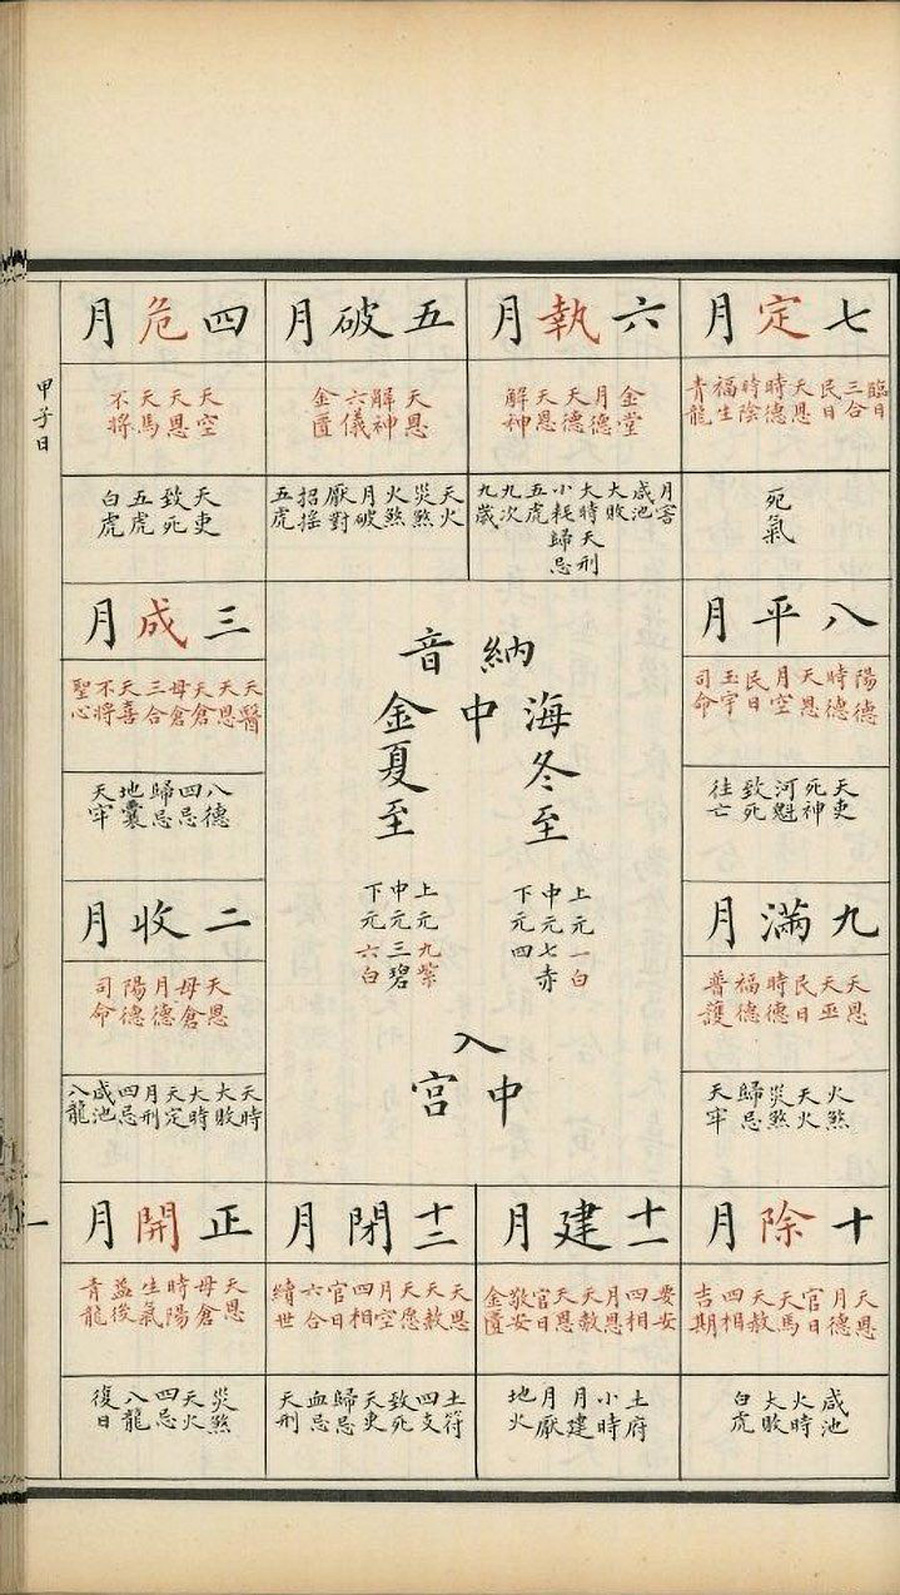 甲子日
一
七定月
臨日 三合 民日 天恩 時德 時陰 福生 青龍
死氣
六執月
金堂 月德 天德 天恩 解神
月害 咸池 大敗 大時 小耗 五虎 九次 九歲 天刑 歸忌
五破月
天恩 解神 六儀 金匱
天火 災煞 火煞 月破 厭對 招搖 五虎
四危月
天空 天恩 天馬 不將
天吏 致死 五虎 白虎
八平月
陽德 時德 天恩 月空 民日 玉宇 司命
天吏 死神 河魁 致死 往亡
三成月
天醫 天恩 天倉 母倉 三合 天喜 不將 聖心
八德 四忌 歸忌 地囊 天牢
納音
海中金
冬至
上元一白
中元七赤
下元四
夏至
上元九紫
中元三碧
下元六白
入中宮
九滿月
天恩 天巫 民日 時德 福德 普護
火煞 天火 災煞 歸忌 天牢
二收月
天恩 母倉 月德 陽德 司命
天時 大敗 大時 天定 月刑 四忌 咸池 八龍
十除月
天恩 月德 官日 天馬 天赦 四相 吉期
咸池 火時 大敗 白虎
十一建月
要安 四相 月恩 天赦 天恩 官日 敬安 金匱
土府 小時 月建 月厭 地火
十二閉月
天恩 天赦 天愿 月空 四相 官日 六合 續世
土符 四支 致死 天吏 歸忌 血忌 天刑
正開月
天恩 母倉 時陽 生氣 益後 青龍
災煞 天火 四忌 八龍 復日